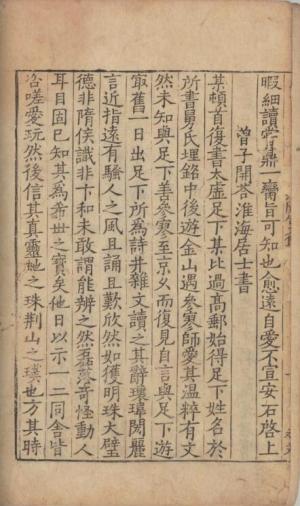 暇細讀嘗鼎一臠旨可知也愈遠自愛不宣安石啓上
曾子開荅淮海居士書
某頓首復書太虛足下某比過高郵始得足下姓名於
所書舅氏埋銘中後遊金山遇參寥師愛其溫粹有文
然未知與足下善參寥至京乆而復見自言與足下遊
㝡舊一日出足下所爲詩并雜文讀之其辭瓌瑋閎麗
言近指遠有騷人之風且誦且歎欣然如獲明珠大璧
德非隋侯識非卞和未敢謂能辨之然磊落奇怪動人
耳目固已知其爲希世之寶矣他日以示一二同舍皆
咨嗟愛玩然後信其真靈虵之珠荆山之璞也方其時